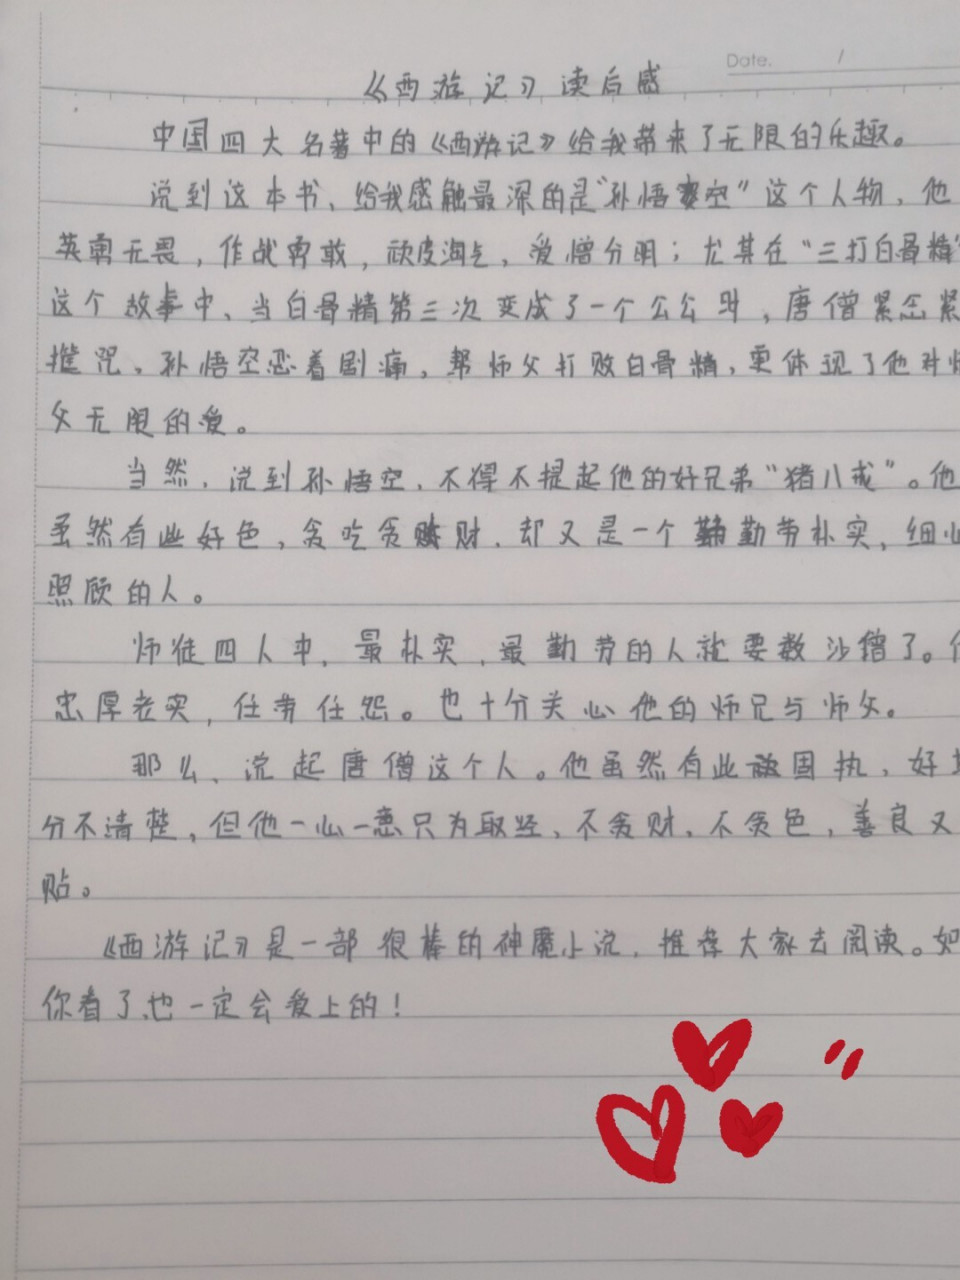 Date. /
《西游记》读后感
中国四大名著中的《西游记》给我带来了无限的乐趣。
说到这本书、给我感触最深的是“孙悟空”这个人物，他
英勇无畏，作战勇敢，顽皮淘气，爱憎分明；尤其在“三打白骨精”
这个故事中、当白骨精第三次变成了一个公公时，唐僧紧念紧
箍咒、孙悟空忍着剧痛，帮师父打败白骨精，更体现了他对师
父无限的爱。
当然，说到孙悟空，不得不提起他的好兄弟“猪八戒”。他
虽然有些好色，贪吃贪财，却又是一个勤劳朴实，细心
照顾的人。
师徒四人中，最朴实，最勤劳的人就要数沙僧了。
忠厚老实，任劳任怨。也十分关心他的师兄与师父。
那么、说起唐僧这个人。他虽然有些顽固执，好
分不清楚，但他一心一意只为取经、不贪财，不贪色，善良又
贴。
《西游记》是一部很棒的神魔小说，推荐大家去阅读。如
你看了也一定会爱上的！